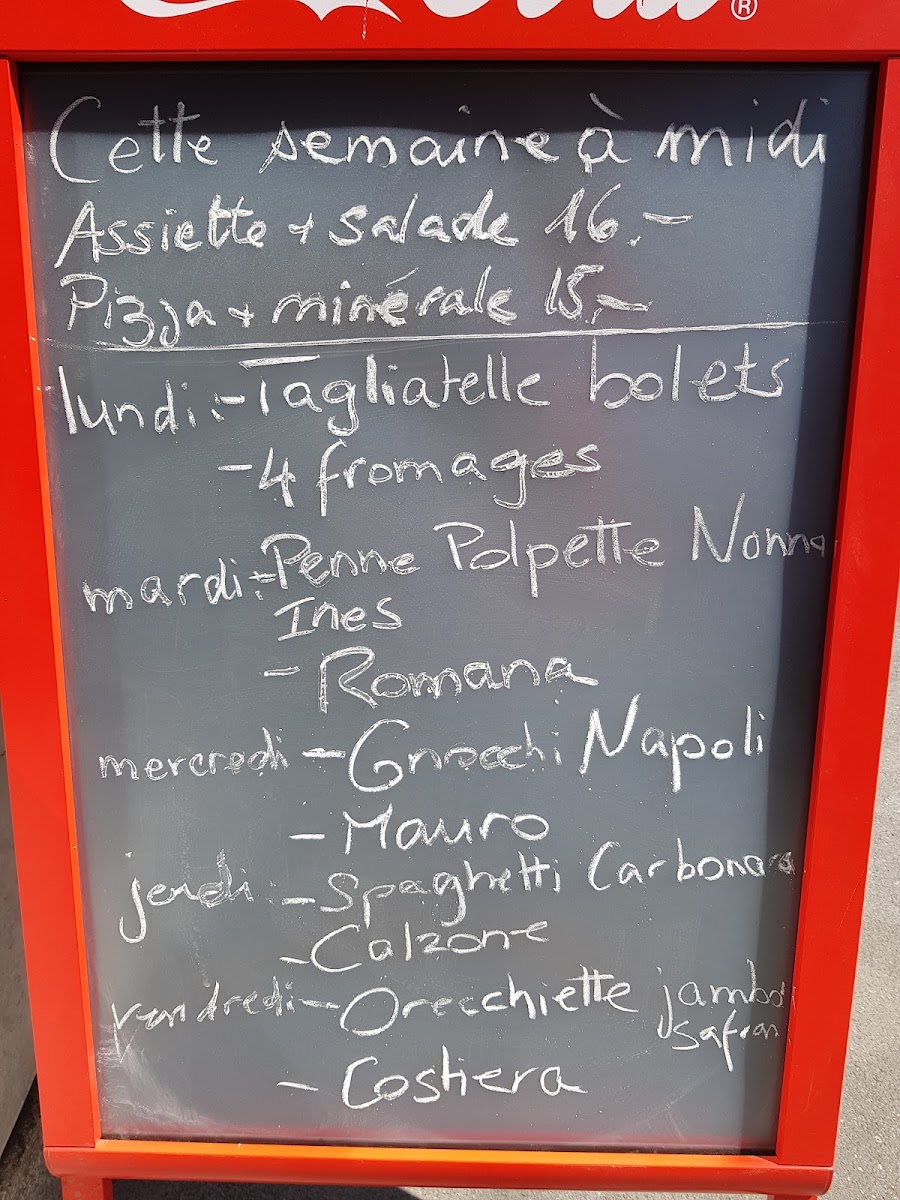 ®
Cette semaine à midi
Assiette + salade 16.-
Pizza + minérale 15.-
lundi: - Tagliatelle bolets
- 4 fromages
mardi: - Penne Polpette Nonna
Ines
- Romana
mercredi - Gnocchi Napoli
- Mauro
jeudi - Spaghetti Carbonara
- Calzone
vendredi - Orecchiette jambon
safran
- Costiera